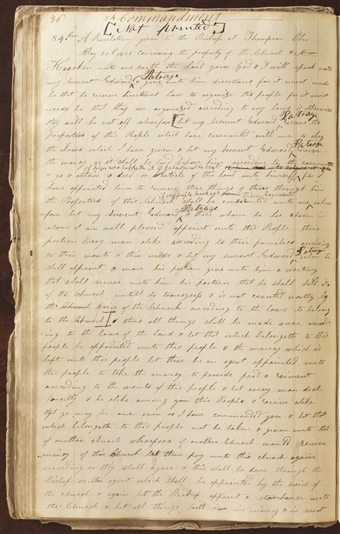 86 54 Commandment
[Not printed]
54th A Revelation given to the Bishop at Thompson Ohio
May 20th 1831 concerning the property of the Church
Hearken unto me saith the Lord your God & I will speak unto
my servent Edward Patrage & give unto him directions for it must needs
be that he receive directions how to organize this people for it must
needs be that they are organized according to my laws if otherwise
they will be cut off wherefore let my servent Edward Patrage receive the
properties of this People which have covenanted with me to obey
the laws which I have given & let my servent Edward Patrage receive
the money as it shall be laid before him according to the covenant
& go & obtain a deed or Article of this land unto himself
have appointed him to receive these things & thus through him
the Properties of the Church shall be consecrated unto me where
fore let my servent Edward Patrage & those whom he has chosen in
whom I am well pleased appoint unto this People their
portion every man alike according to their families according
to their wants & their needs & let my servent Edward Patrage when he
shall appoint a man his portion give unto him a writing
that shall secure unto him his portion that he shall hold it
of the church untill he transgress & is not counted worthy by
the voice of the Church according to the laws to belong
to the Church & thus all things shall be made sure accor
ding to the laws of the land & let that which belongeth to this
people be appointed unto this people & the money which is
left unto this people let there be an agent appointed unto
this people to take the money to provide food & raiment
according to the wants of this people & let every man deal
honestly & be alike among this People & receive alike
that ye may be one even as I have commanded you & let that
which belongeth to this people not be taken & given unto that
of another church wherefore if another Church would receive
money of this Church let them pay unto this church again
according as they shall agree & this shall be done through the
Bishop or the agent which shall be appointed by the voice of
the church & again let the Bishop appoint a storehouse unto
this Church & let all things both in money & in meat